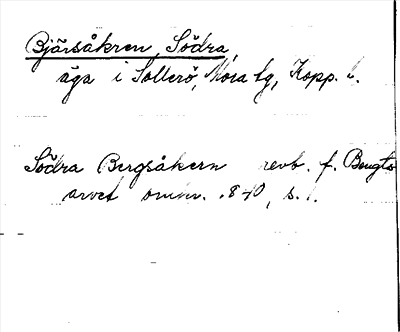 Bjärsåkren, Södra,
äga i Sollerö, Mora tg, Kopp. l.
Södra Bergsåkern revb. f. Bengts
arvet omkr. 1840, s. 1.